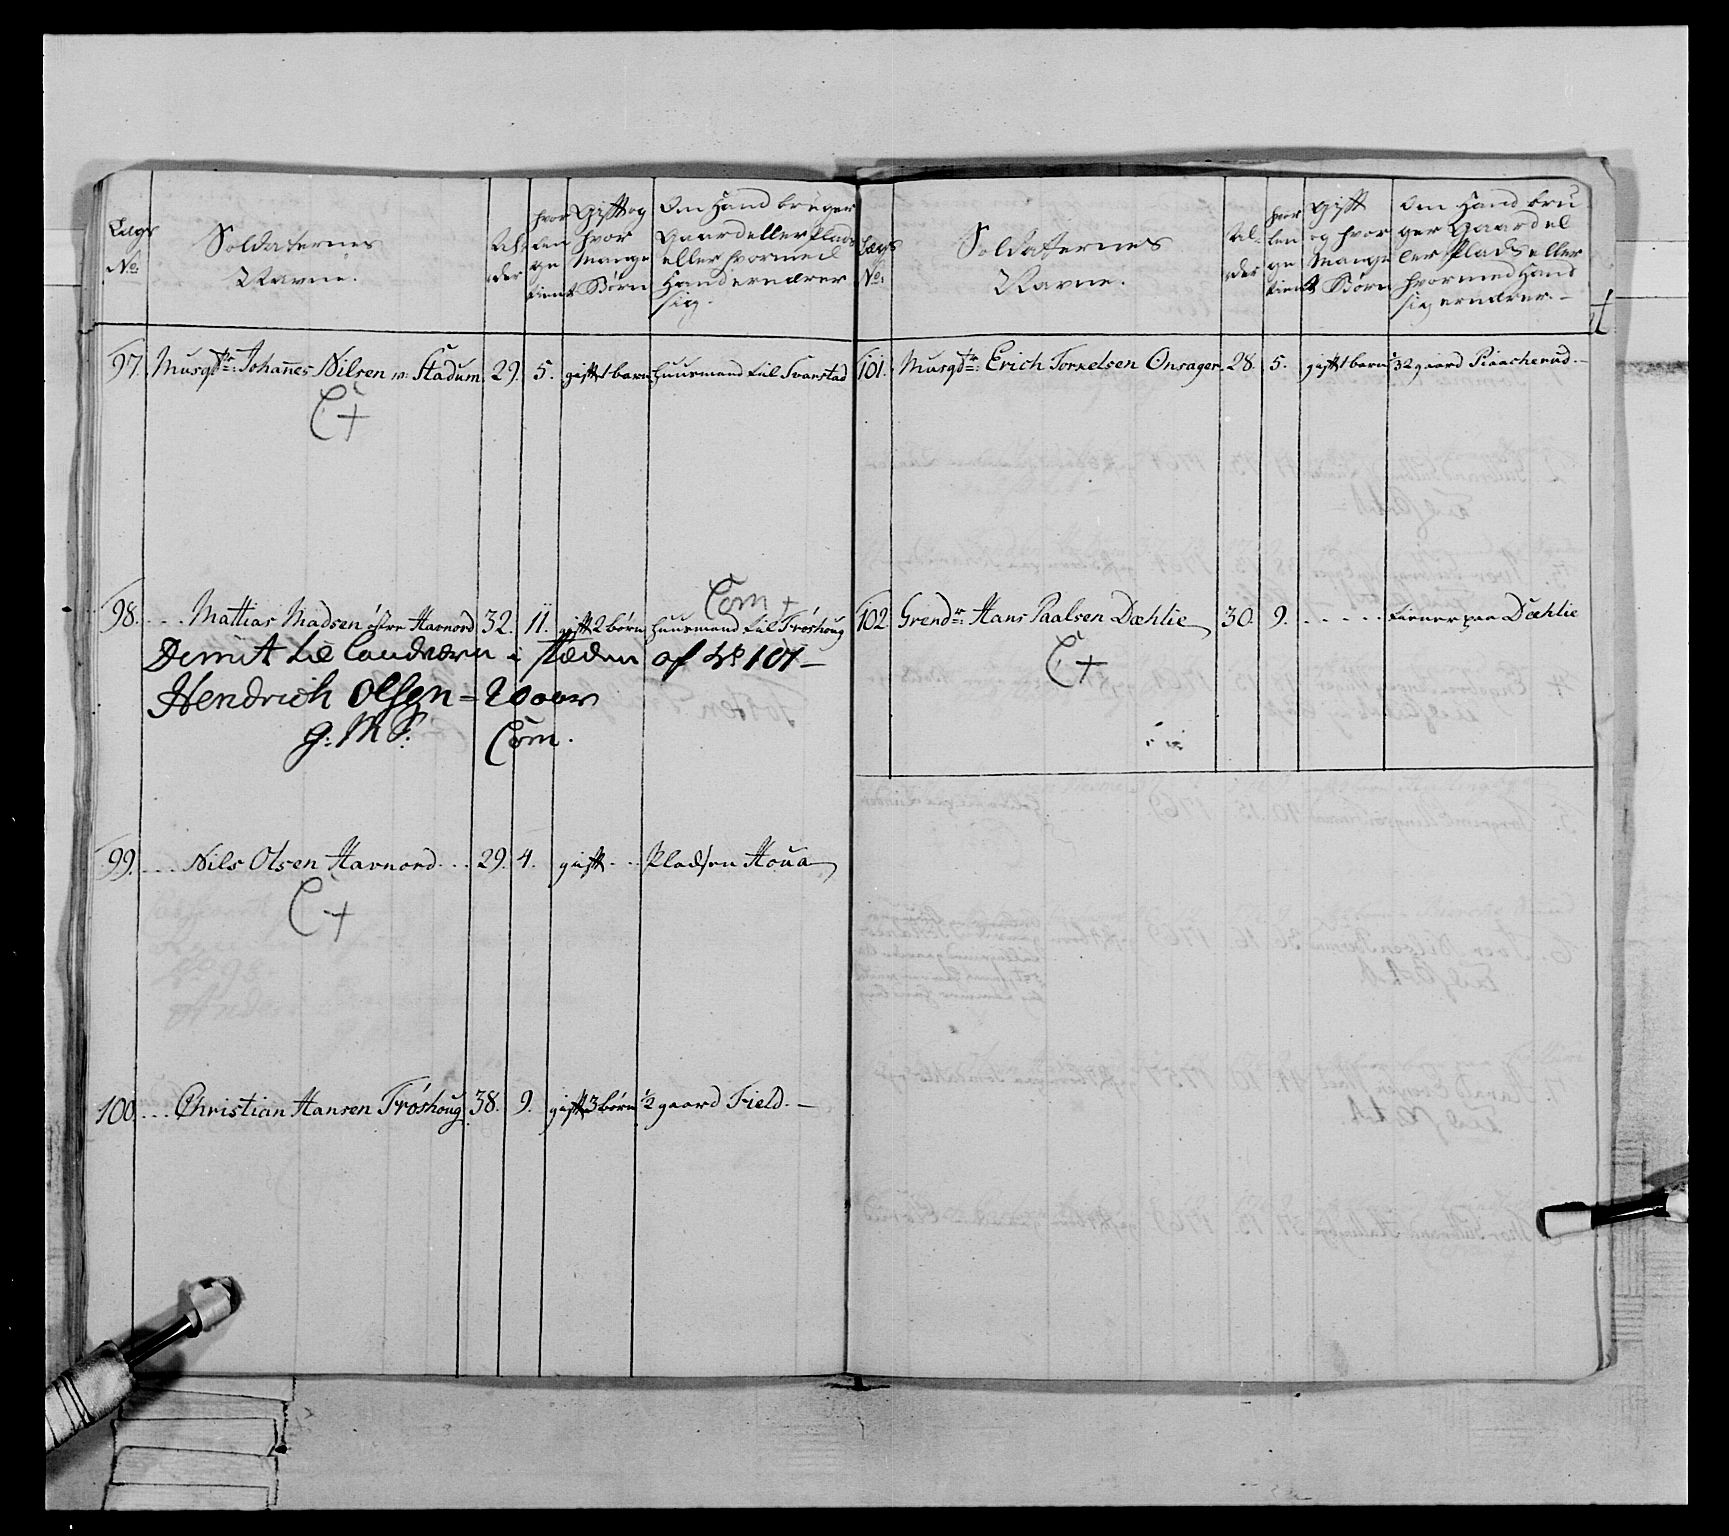 Lægs No: Soldaternes Navne. Al- der hvor len ge tient Gift og hvor Mange Børn Om Hand bruger Gaard eller Plads eller hvormed Hand ernærer sig.
97. Musqdr: Johannes Nilsen n: Stadum 29. 5. gift 1 barn huusmand til Svarstad
C +
Com +
98. Mattias Madsen östre Harnord 32. 11. gift 2 börn huusmand til Fröshoug
Dimit til Landværn i stæden af No 101 –
Hendrich Olsen = 20 aar
g: M S: Com.
99. Nils Olsen Harnord 29. 4. gift Pladsen Houa
C +
100. Christian Hansen Fröshoug 38. 9. gift 3 börn 1/2 gaard Field. –
Lægs No: Soldatternes Navne. Al- der hvor len ge tient Gift og hvor Mange Børn Om Hand bru ger Gaard el ler Plads eller hvormed Hand sig ernærer. –
101. Musqdr: Erich Torkelsen Onsager 28. 5. gift 1 barn 1/2 gaard Raacherud. –
102. Grendr: Hans Paalsen Dæhlie 30. 9. tiener paa Dæhlie
C +